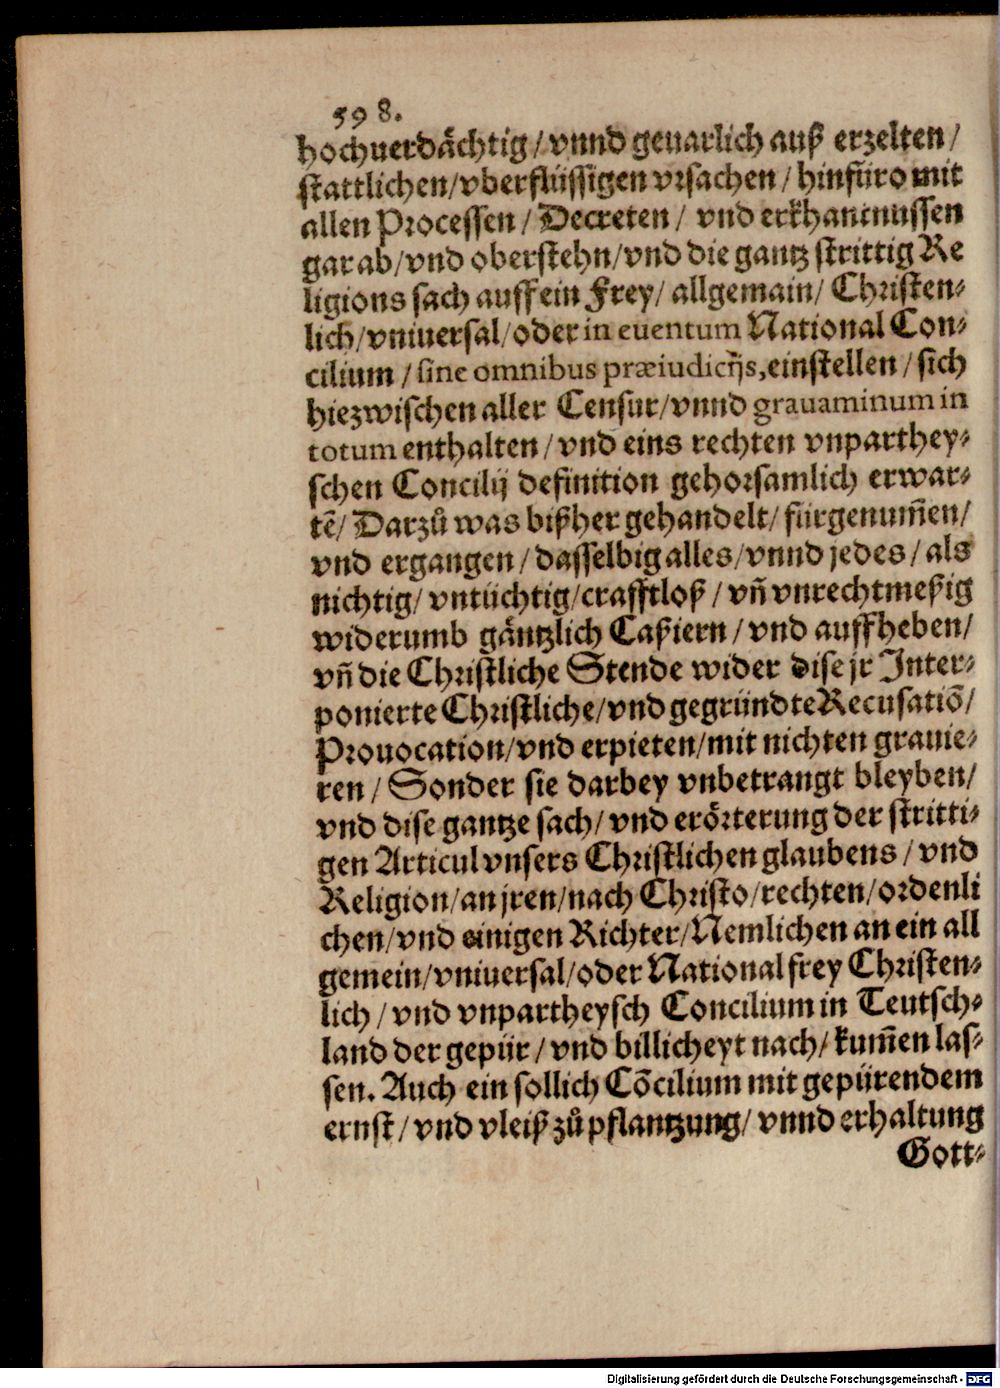 598.
hochuerdächtig/ vnnd geuarlich auß erzelten/
stattlichen/ vberflüssigen vrsachen/ hinfüro mit
allen Processen/ Decreten/ vnd erkhantnussen
gar ab/ vnd oberstehn/ vnd die gantz strittig Re
ligions sach auff ein Frey/ allgemain/ Christen-
lich/ vniuersal/ oder in euentum National Con-
cilium/ sine omnibus præiudicijs, einstellen/ sich
hiezwischen aller Censur/ vnnd grauaminum in
totum enthalten/ vnd eins rechten vnparthey-
schen Concilij definition gehorsamlich erwar-
tē/ Darzů was bißher gehandelt/ fürgenum̃en/
vnd ergangen/ dasselbig alles/ vnnd jedes/ als
nichtig/ vntüchtig/ crafftloß/ vñ vnrechtmeßig
widerumb gäntzlich Caßiern/ vnd auffheben/
vñ die Christliche Stende wider dise jr Inter-
ponierte Christliche/ vnd gegründte Recusatiõ/
Prouocation/ vnd erpieten/ mit nichten grauie-
ren/ Sonder sie darbey vnbetrangt bleyben/
vnd dise gantze sach/ vnd erörterung der stritti-
gen Articul vnsers Christlichen glaubens/ vnd
Religion/ an jren/ nach Christo/ rechten/ ordenli
chen/ vnd einigen Richter/ Nemlichen an ein all
gemein/ vniuersal/ oder National frey Christen-
lich/ vnd vnpartheysch Concilium in Teutsch-
land der gepür/ vnd billicheyt nach/ kum̃en las-
sen. Auch ein sollich Cõcilium mit gepürendem
ernst/ vnd vleiß zů pflantzung/ vnnd erhaltung
Gott-
Digitalisierung gefördert durch die Deutsche Forschungsgemeinschaft - DFG